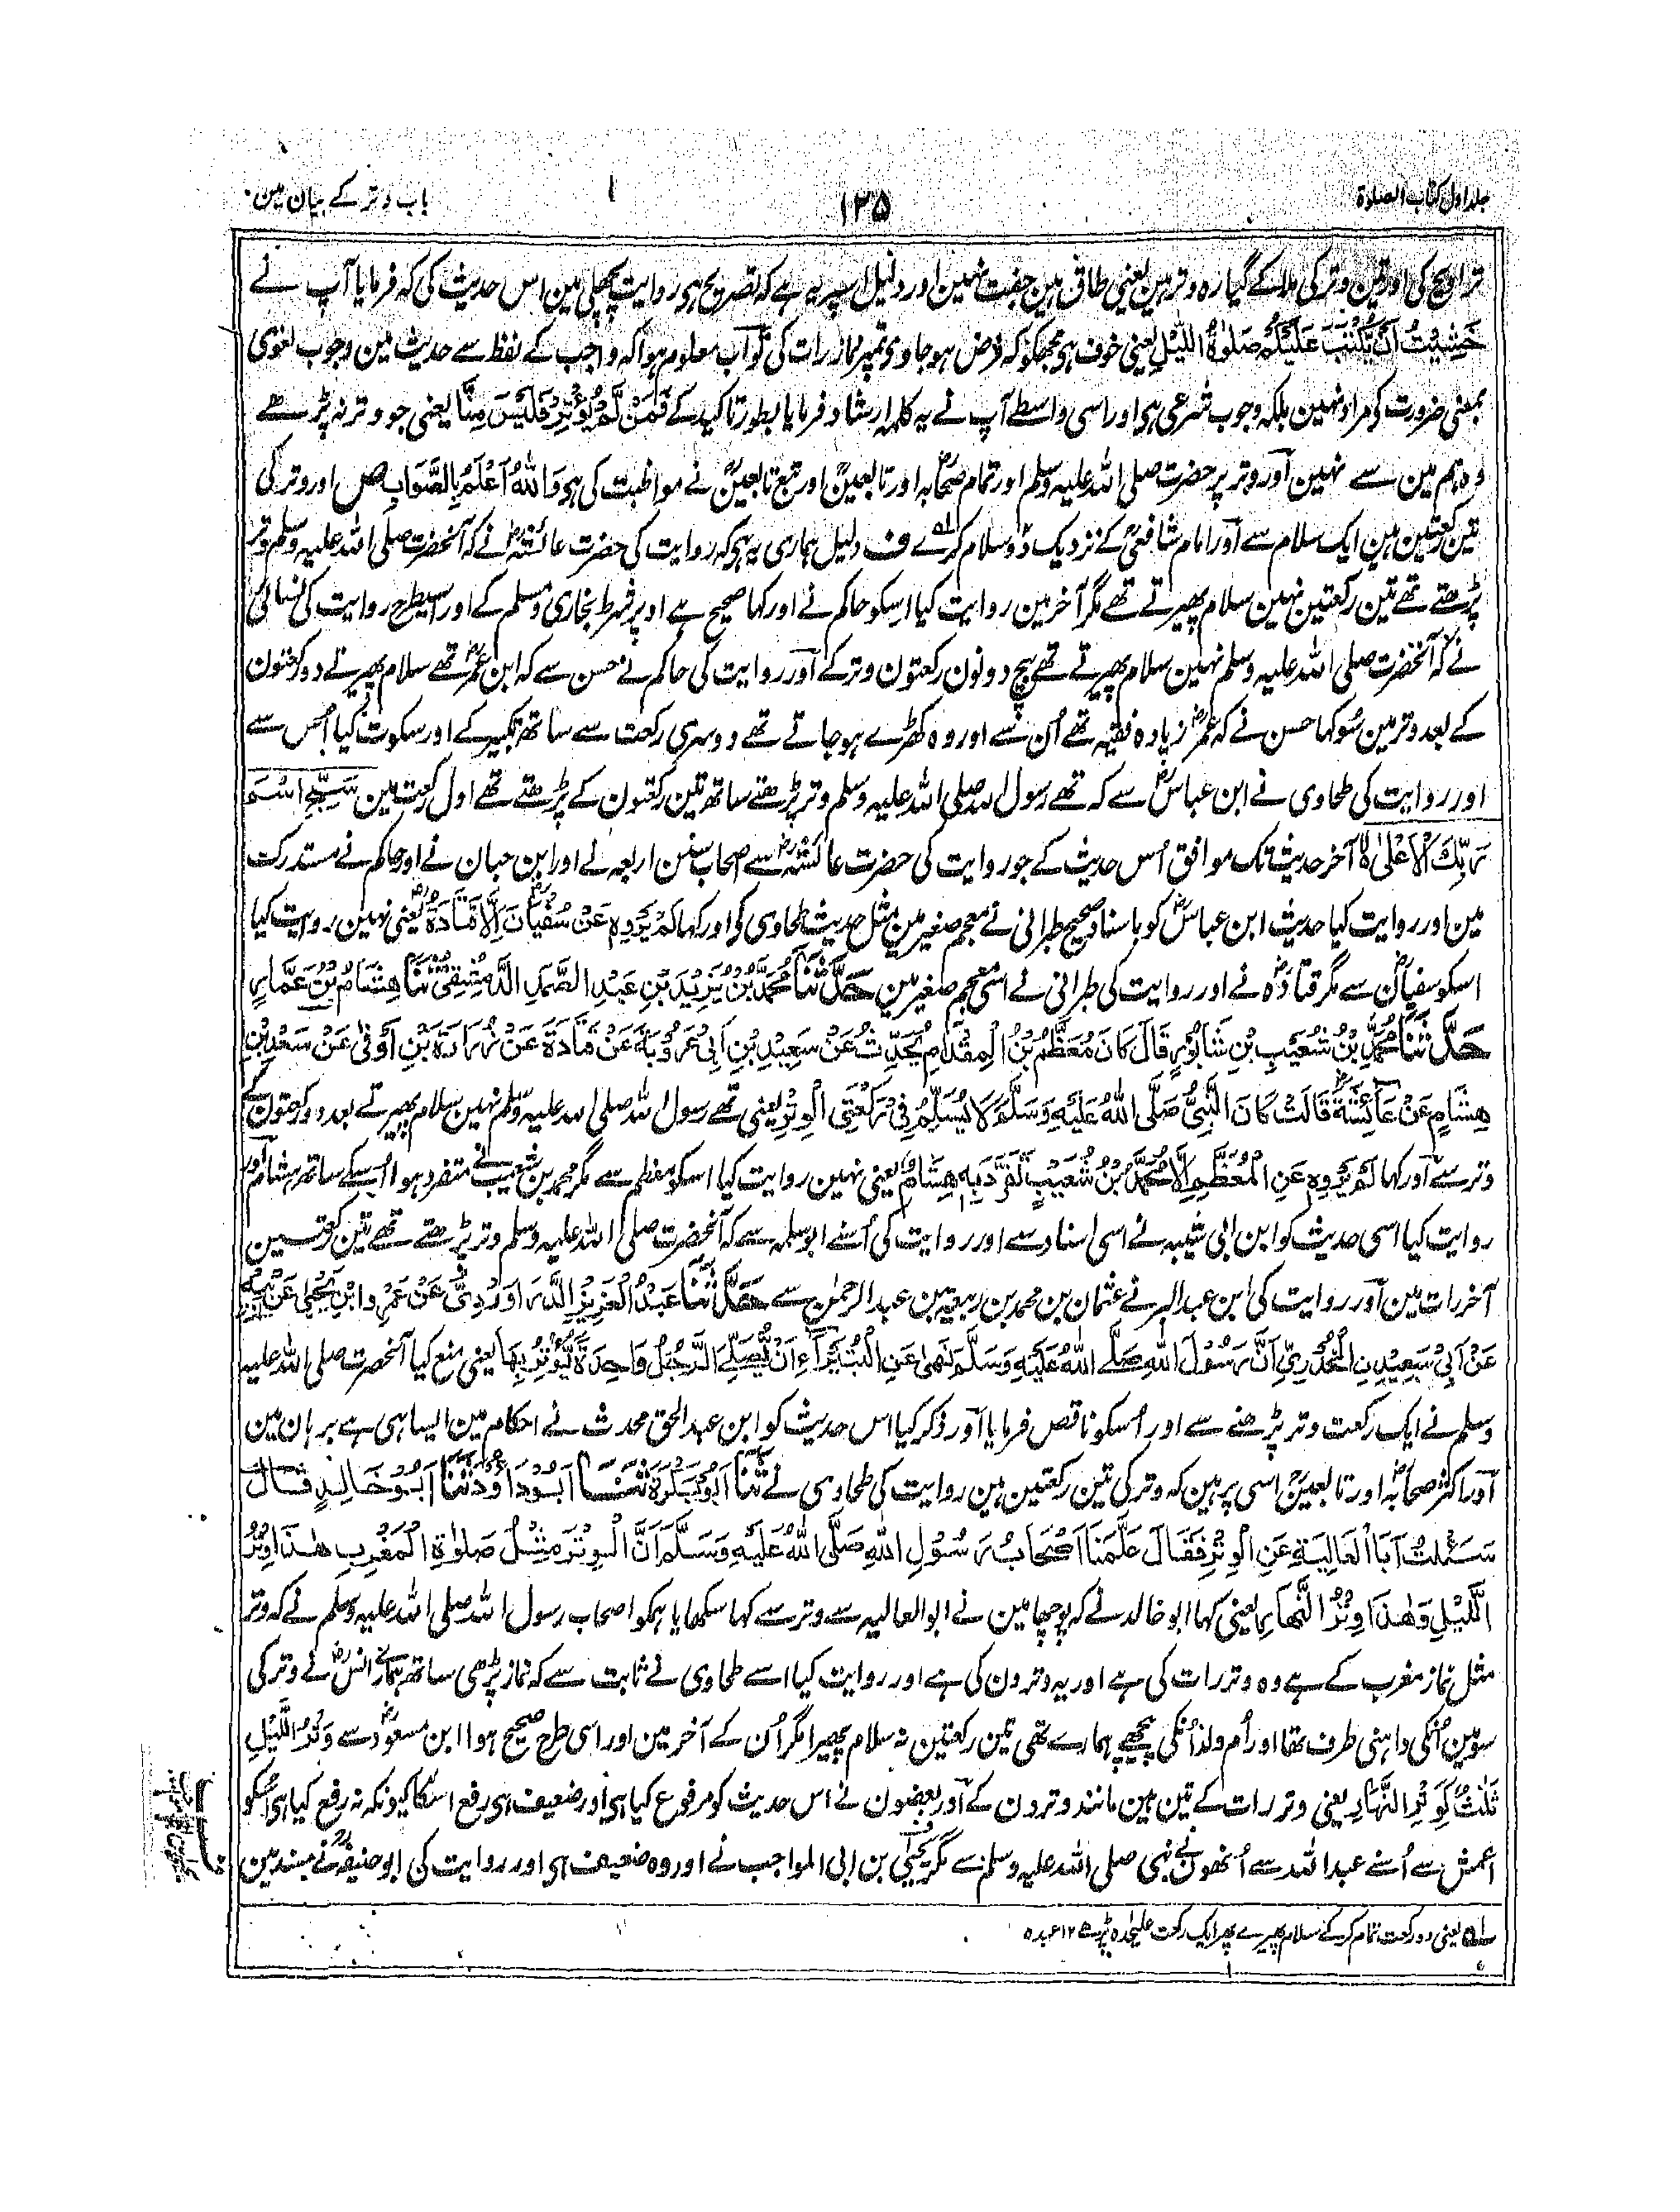 جلد اول کتاب الصلوۃ
۱۳۵
باب وتر کے بیان مین
تراویح کی اور تین وتر کی ملا کے گیارہ وتر ہین یعنی طاق ہین جفت نہین اور دلیل اسپر یہ ہے کہ تصریح ہی روایت پچھلی مین اس حدیث کی کہ فرمایا آپ نے
خَشِيْتُ اَنْ يُّكْتَبَ عَلَيْكُمْ صَلٰوةُ اللَّيْلِ یعنی خوف ہی مجھکو کہ فرض ہو جاوی تمپر نماز رات کی تو آب معلوم ہوا کہ واجب کے لفظ سے حدیث مین وجوب لغوی
بمعنی ضرورت کو مراد نہین بلکہ وجوب شرعی ہی اور اسی واسطے آپ نے یہ کلمہ ارشاد فرمایا بطور تاکید کے فَمَنْ لَّمْ يُوْتِرْ فَلَيْسَ مِنَّا یعنی جو وتر نہ پڑھے
وہ ہم مین سے نہین اور وتر پر حضرت صلی اللہ علیہ وسلم اور تمام صحابہ اور تابعین اور تبع تابعین نے مواظبت کی ہی وَاللهُ اَعْلَمُ بِالصَّوَابِ ص اور وتر کی
تین رکعتین ہین ایک سلام سے اور امام شافعی کے نزدیک دو سلام کرے ف دلیل ہماری یہ ہی کہ روایت کی حضرت عائشہ نے کہ آنحضرت صلی اللہ علیہ وسلم وتر
پڑھتے تھے تین رکعتین نہین سلام پھیرتے تھے مگر آخر مین روایت کیا اسکو حاکم نے اور کہا صحیح ہے اوپر شرط بخاری و مسلم کے اور اسیطرح روایت کی نسائی
نے کہ آنحضرت صلی اللہ علیہ وسلم نہین سلام پھیرتے تھے بیچ دونون رکعتون وتر کے اور روایت کی حاکم نے حسن سے کہ ابن عمر تھے سلام پھیرتے دو رکعتون
کے بعد وتر مین سو کہا حسن نے کہ عمر زیادہ فقیہ تھے اُن سے اور وہ کھڑے ہو جاتے تھے دوسری رکعت سے ساتھ تکبیر کے اور سکوت کیا اُس سے
اور روایت کی طحاوی نے ابن عباس سے کہ تھے رسول اللہ صلی اللہ علیہ وسلم وتر پڑھتے ساتھ تین رکعتون کے پڑھتے تھے اول رکعت مین سَبِّحِ اسْمَ
رَبِّكَ الْاَعْلٰى آخر حدیث تک موافق اُس حدیث کے جو روایت کی حضرت عائشہ سے صحاب سنن اربعہ نے اور ابن حبان نے اور حاکم نے مستدرک
مین اور روایت کیا حدیث ابن عباس کو باسناد صحیح طبرانی نے معجم صغیر مین مثل حدیث طحاوی کو اور کہا لَمْ يَرْوِهٖ عَنْ سُفْيَانَ اِلَّا قَتَادَةُ یعنی نہین روایت کیا
اسکو سفیان سے مگر قتادہ نے اور روایت کی طبرانی نے اسی معجم صغیر مین حَدَّثَنَا مُحَمَّدُ بْنُ يَزِيْدَ بْنِ عَبْدِ الصَّمَدِ الدِّمَشْقِيُّ ثَنَا هِشَامُ بْنُ عَمَّارٍ
حَدَّثَنَا مُحَمَّدُ بْنُ شُعَيْبِ بْنِ شَابُوْرٍ قَالَ كَانَ مُعَظَّمُ بْنُ الْمِقْدَامِ يُحَدِّثُ عَنْ سَعِيْدِ بْنِ اَبِيْ عَرُوْبَةَ عَنْ قَتَادَةَ عَنْ زُرَارَةَ بْنِ اَوْفٰى عَنْ سَعْدِ بْنِ
هِشَامٍ عَنْ عَائِشَةَ قَالَتْ كَانَ النَّبِيُّ صَلَّى اللهُ عَلَيْهِ وَسَلَّمَ لَا يُسَلِّمُ فِيْ رَكْعَتَيِ الْوِتْرِ یعنی تھے رسول اللہ صلی اللہ علیہ وسلم نہین سلام پھیرتے بعد دو رکعتون کے
وتر سے اور کہا لَمْ يَرْوِهٖ عَنِ الْمُعَظَّمِ اِلَّا مُحَمَّدُ بْنُ شُعَيْبٍ تَفَرَّدَ بِهٖ هِشَامٌ یعنی نہین روایت کیا اسکو معظم سے مگر محمد بن شعیب نے متفرد ہوا اُسکے ساتھ ہشام اور
روایت کیا اسی حدیث کو ابن ابی شیبہ نے اسی اسناد سے اور روایت کی اُسنے ابو سلمہ سے کہ آنحضرت صلی اللہ علیہ وسلم وتر پڑھتے تھے تین رکعتین
آخر رات مین اور روایت کی ابن عبد البر نے عثمان بن محمد بن ربیعہ بن عبد الرحمٰن سے حَدَّثَنَا عَبْدُ الْعَزِيْزِ الدَّرَاوَرْدِيُّ عَنْ عَمْرِو ابْنِ يَحْيٰى عَنْ اَبِيْهِ
عَنْ اَبِيْ سَعِيْدِنِ الْخُدْرِيِّ اَنَّ رَسُوْلَ اللهِ صَلَّى اللهُ عَلَيْهِ وَسَلَّمَ نَهٰى عَنِ الْبُتَيْرَاءِ اَنْ يُّصَلِّيَ الرَّجُلُ وَاحِدَةً يُّوْتِرُ بِهَا یعنی منع کیا آنحضرت صلی اللہ علیہ
وسلم نے ایک رکعت وتر پڑھنے سے اور اُسکو ناقص فرمایا اور ذکر کیا اس حدیث کو ابن عبد الحق محدث نے احکام مین ایسا ہی ہے برہان مین
اور اکثر صحابہ اور تابعین اسی پر ہین کہ وتر کی تین رکعتین ہین روایت کی طحاوی نے ثَنَا اَبُوْ بَكْرَةَ ثَنَا اَبُوْ دَاوُدَ ثَنَا اَبُوْ خَالِدٍ قَالَ
سَئَلْتُ اَبَا الْعَالِيَةِ عَنِ الْوِتْرِ فَقَالَ عَلَّمَنَا اَصْحَابُ رَسُوْلِ اللهِ صَلَّى اللهُ عَلَيْهِ وَسَلَّمَ اَنَّ الْوِتْرَ مِثْلُ صَلٰوةِ الْمَغْرِبِ هٰذَا وِتْرُ
اللَّيْلِ وَهٰذَا وِتْرُ النَّهَارِ یعنی کہا ابو خالد نے کہ پوچھا مین نے ابو العالیہ سے وتر سے کہا سکھایا ہمکو اصحاب رسول اللہ صلی اللہ علیہ وسلم نے کہ وتر
مثل نماز مغرب کے ہے وہ وتر رات کی ہے اور یہ وتر دن کی ہے اور روایت کیا اسے طحاوی نے ثابت سے کہ نماز پڑھی ساتھ ہمارے انس نے وتر کی
سو مین اُنکی داہنی طرف تھا اور اُم ولد اُنکی پیچھے ہمارے تھی تین رکعتین نہ سلام پھیرا مگر اُن کے آخر مین اور اسی طرح صحیح ہوا ابن مسعود سے وَتْرُ اللَّيْلِ
ثَلٰثٌ كَوَتْرِ النَّهَارِ یعنی وتر رات کے تین ہین مانند وتر دن کے اور بعضون نے اس حدیث کو مرفوع کیا ہی اور ضعیف ہی رفع اسکا کیونکہ نہ رفع کیا ہی اُسکو
اعمش سے اُسنے عبد اللہ سے اُنھون نے نبی صلی اللہ علیہ وسلم سے مگر یحیی بن ابی المواجب نے اور وہ ضعیف ہی اور روایت کی ابو حنیفہ نے مسند مین
لہ یعنی دو رکعت تمام کر کے سلام پھیرے پھر ایک رکعت علیحدہ پڑھے ۱۲ عبدہ